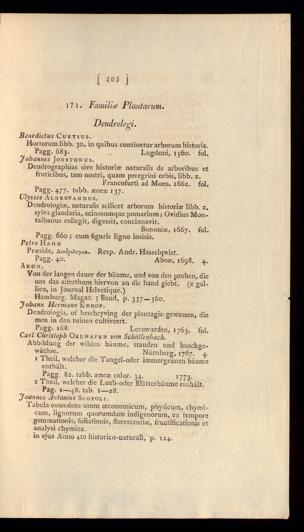 [ 205 ]
171. Familiæ Plantarum.
Dendrologi.
Benedictus CURTIUS.
Hortorum libb. 30, in quibus continetur arborum historia.
Pagg. 683. Lugduni, 1560. fol.
Johannes JONSTONUS.
Dendrographias sive historiæ naturalis de arboribus et
fruticibus, tam nostri, quam peregrini orbis, libb. x.
Francofurti ad Moen. 1662. fol.
Pagg. 477. tabb. æneæ 137.
Ulysses ALDROVANDUS.
Dendrologiæ, naturalis scilicet arborum historiæ libb. 2,
sylva glandaria, acinosumque pomarium; Ovidius Mon-
talbanus collegit, digessit, concinnavit.
Bononiæ, 1667. fol.
Pagg. 660; cum figuris ligno incisis.
Petro HAHN
Præside, Δενδρολογια. Resp. Andr. Hasselqwist.
Pagg. 40. Aboæ, 1698. 4.
ANON.
Von der langen dauer der bäume, und von den proben, die
uns das alterthum hiervon an die hand giebt. (e gal-
lico, in Journal Helvetique.)
Hamburg. Magaz. 5 Band, p. 337—360.
Johann Hermann KNOOP.
Dendrologia, of beschryving der plantagie-gewassen, die
men in den tuinen cultiveert.
Pagg. 168. Leeuwarden, 1763. fol.
Carl Christoph OELHAFEN von Schöllenbach.
Abbildung der wilden bäume, stauden und buschge-
wächse. Nürnberg, 1767. 4.
1 Theil, welcher die Tangel-oder immergrünen bäume
enthält.
Pagg. 82. tabb. æneæ color. 34. 1773.
2 Theil, welcher die Laub-oder Blätterbäume enthält.
Pag. 1—48. tab. 1—28.
Joannes Antonius SCOPOLI.
Tabula ostendens usum œconomicum, physicum, chymi-
cum, lignorum quorumdam indigenorum, ex tempore
gemmationis, foliationis, florescentiæ, fructificationis et
analysi chymica.
in ejus Anno 4to historico-naturali, p. 124.